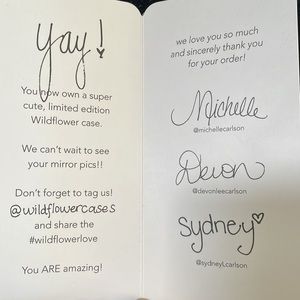 yay!
You now own a super
cute, limited edition
Wildflower case.
We can't wait to see
your mirror pics!!
Don't forget to tag us!
@wildflowercases
and share the
#wildflowerlove
You ARE amazing!
we love you so much
and sincerely thank you
for your order!
Michelle
@michellecarlson
Devon
@devonleecarlson
Sydney
@sydneyLcarlson